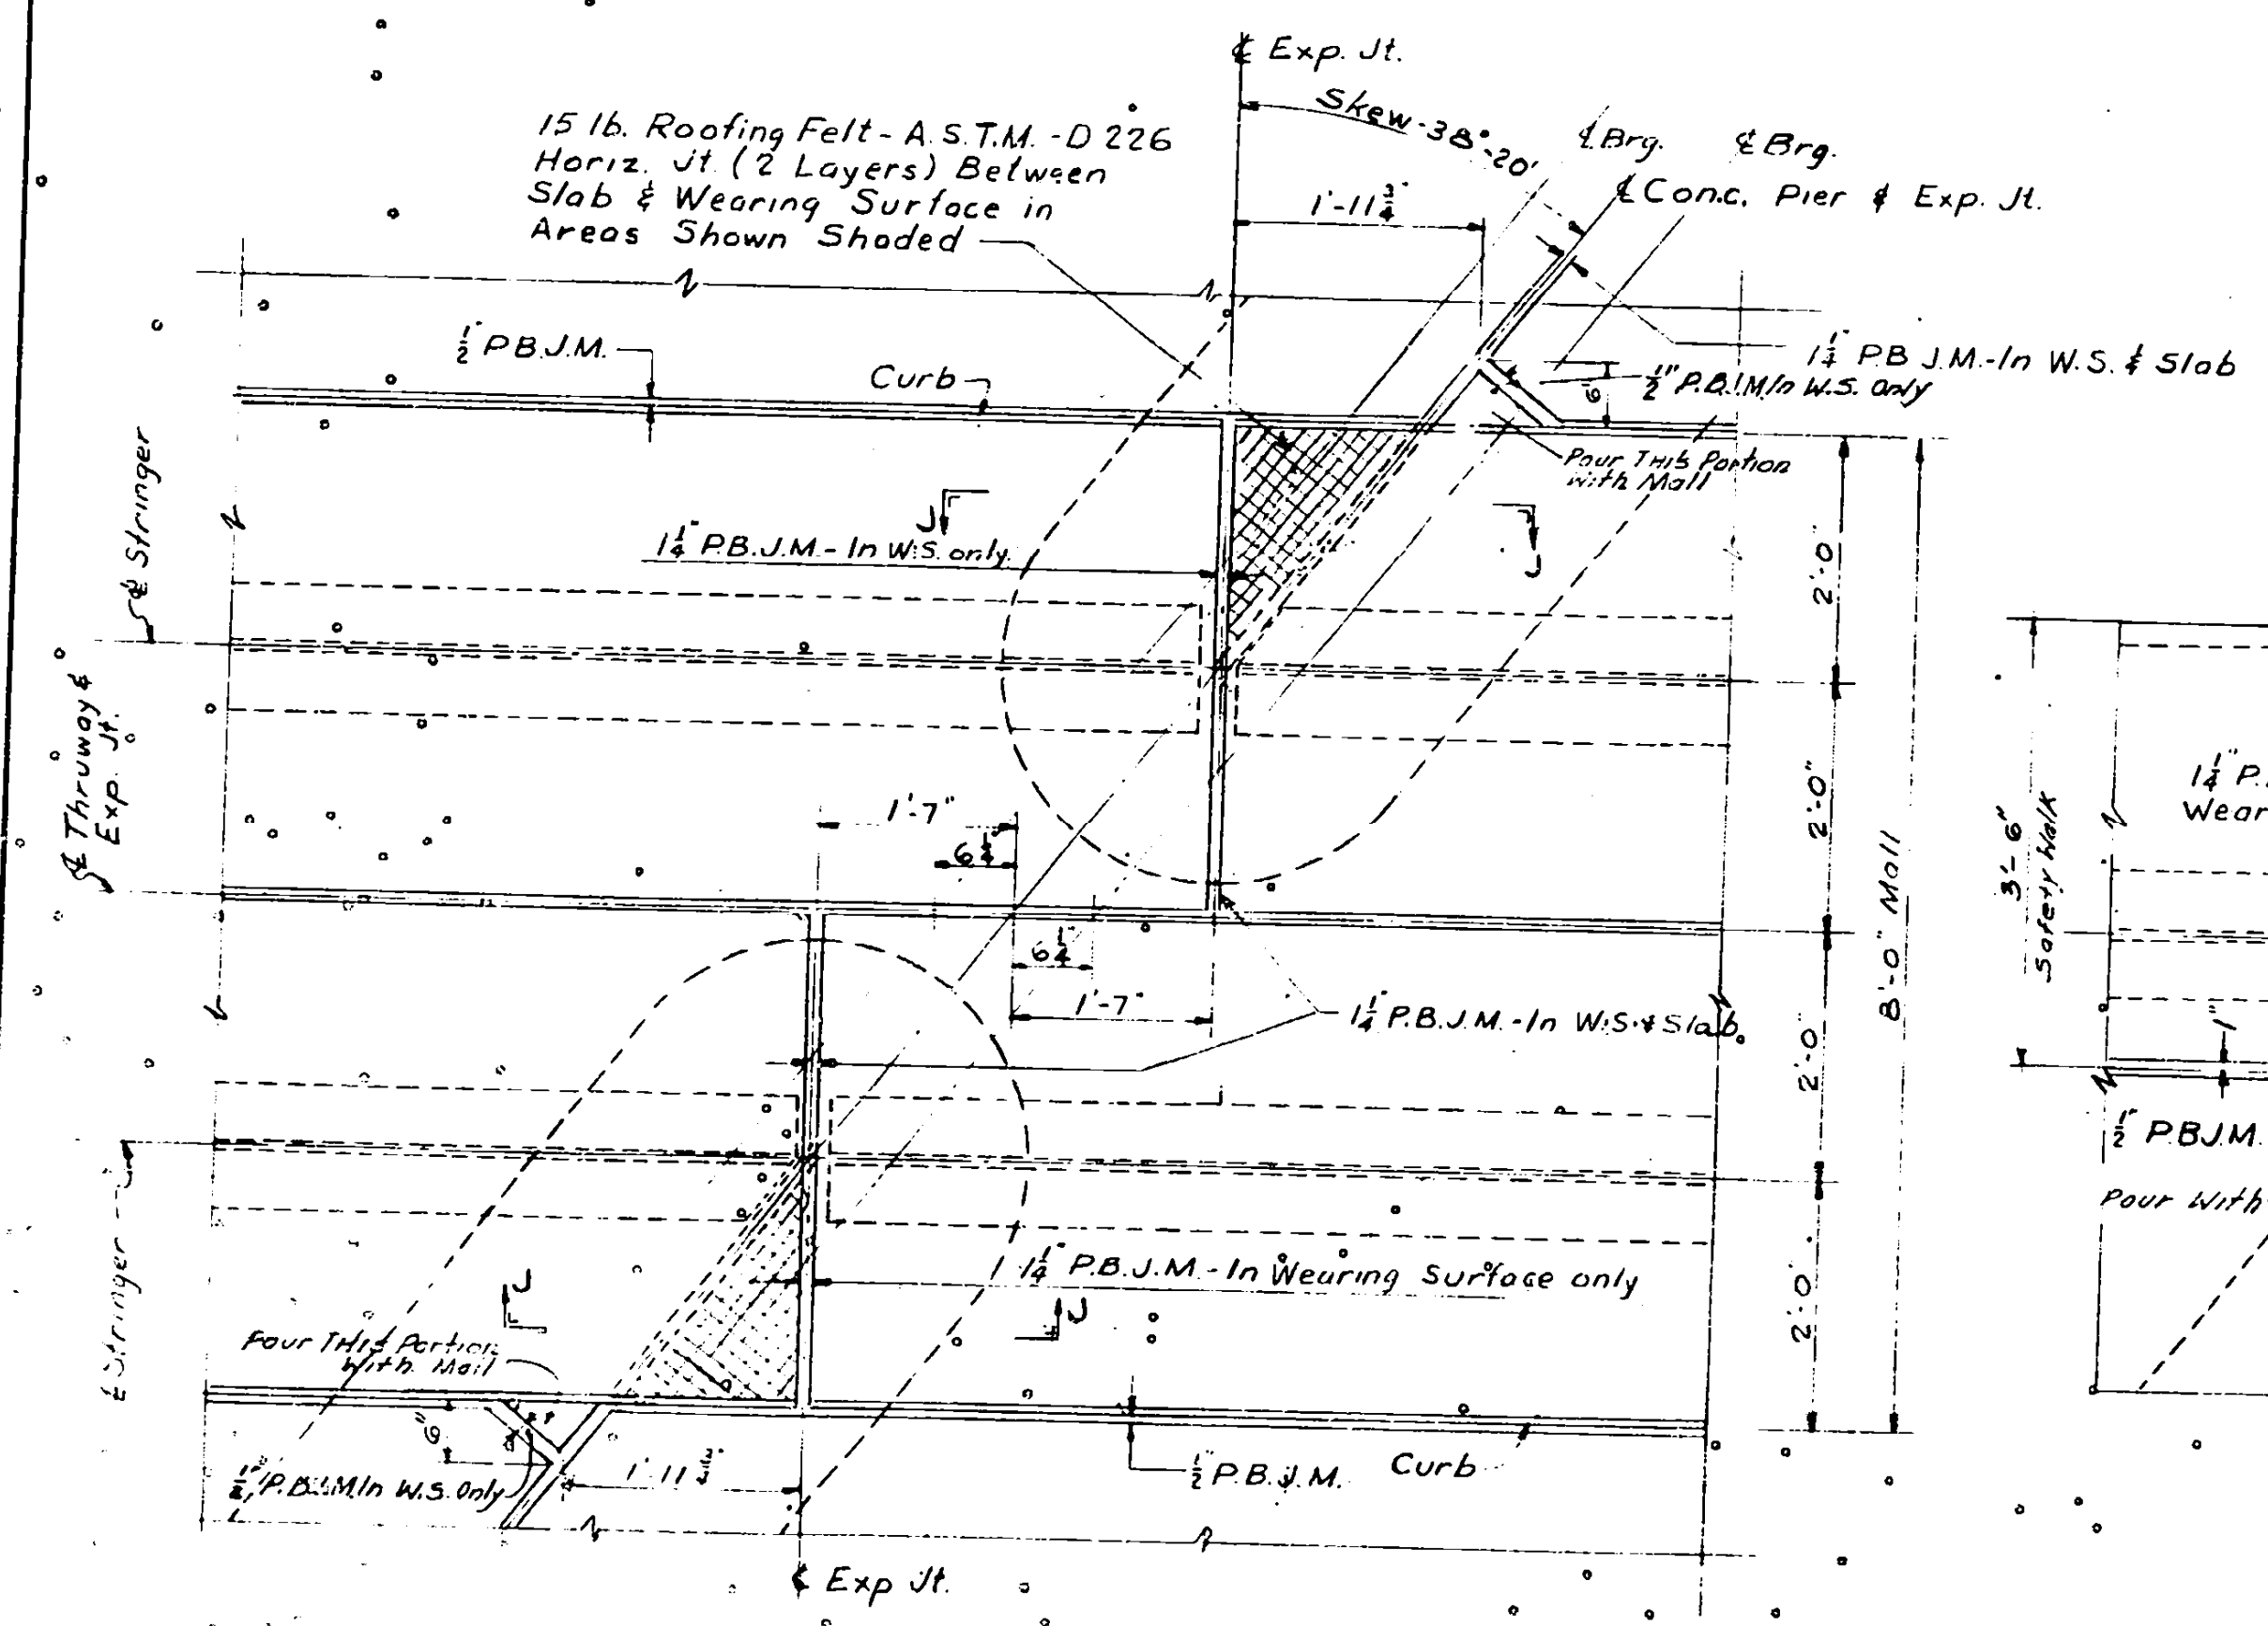 ℄ Exp. Jt.
Skew-38°-20'
15 lb. Roofing Felt - A.S.T.M. - D 226
Horiz. Jt. (2 Layers) Between
Slab & Wearing Surface in
Areas Shown Shaded
℄ Brg.
℄ Brg.
℄ Conc. Pier & Exp. Jt.
1'-11 3/4"
1/2" P.B.J.M.
Curb
1 1/4" P.B.J.M.-In W.S. & Slab
1/2" P.B.J.M In W.S. Only
6"
Pour THIS Portion
with Mall
℄ Stringer
J
J
1 1/4" P.B.J.M.-In W.S. only
2'-0"
℄ Thruway &
Exp. Jt.
1'-7"
6 1/4"
2'-0"
8'-0" Mall
3'-6"
Safety Walk
1 1/4" P.
Wear
6 1/4"
1'-7"
1 1/4" P.B.J.M.-In W.S. & Slab
2'-0"
1"
1/2" P.B.J.M.
Pour With
℄ Stringer
1 1/4" P.B.J.M.-In Wearing Surface only
J
J
2'-0"
Pour THIS Portion
With Mall
6"
1/2" P.B.J.M In W.S. Only
1'-11 3/4"
1/2" P.B.J.M.
Curb
℄ Exp Jt.